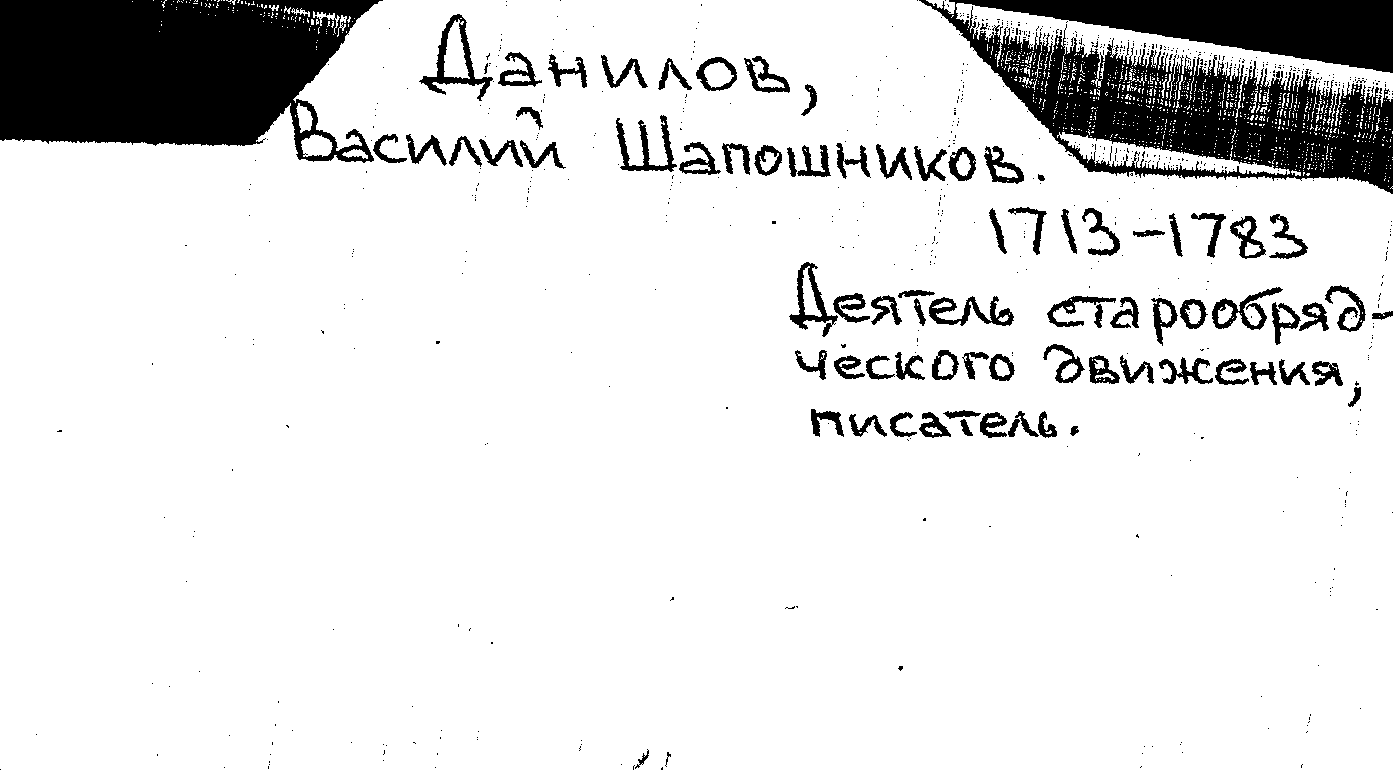 Данилов,
Василий Шапошников.
1713-1783
Деятель старообряд-
ческого движения,
писатель.